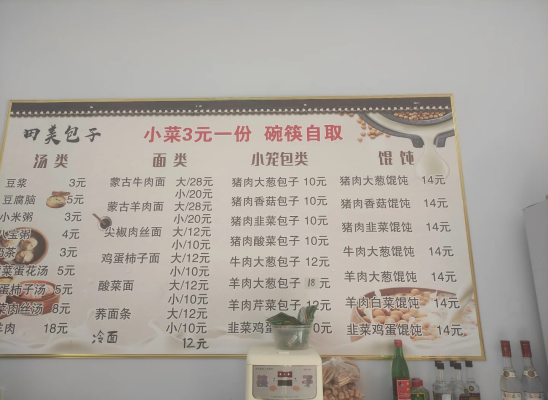 田美包子
小菜3元一份 碗筷自取
汤类
豆浆 3元
豆腐脑 5元
小米粥 3元
八宝粥 4元
奶茶 3元
菜蛋花汤 5元
蛋柿子汤 5元
菜肉丝汤 8元
羊肉 18元
面类
蒙古牛肉面 大/28元
小/20元
蒙古羊肉面 大/28元
小/20元
尖椒肉丝面 大/12元
小/10元
鸡蛋柿子面 大/12元
小/10元
酸菜面 大/12元
小/10元
荞面条 大/12元
小/10元
冷面 12元
小笼包类
猪肉大葱包子 10元
猪肉香菇包子 10元
猪肉韭菜包子 10元
猪肉酸菜包子 10元
牛肉大葱包子 12元
羊肉大葱包子 18元
羊肉芹菜包子 12元
韭菜鸡蛋 0元
馄饨
猪肉大葱馄饨 14元
猪肉香菇馄饨 14元
猪肉韭菜馄饨 14元
牛肉大葱馄饨 14元
羊肉大葱馄饨 14元
羊肉白菜馄饨 14元
韭菜鸡蛋馄饨 14元
筷子